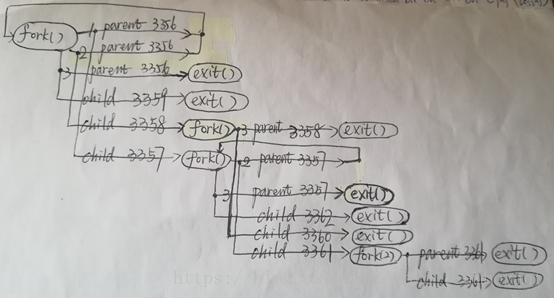 fork() 1 parent 3356
2 parent 3356
3 parent 3356 exit()
child 3359 exit()
child 3358 fork() 3 parent 3358 exit()
child 3357 fork() 2 parent 3357
3 parent 3357 exit()
child 3362 exit()
child 3360 exit()
child 3361 fork(2) parent 3361 exit()
child 3361 exit()